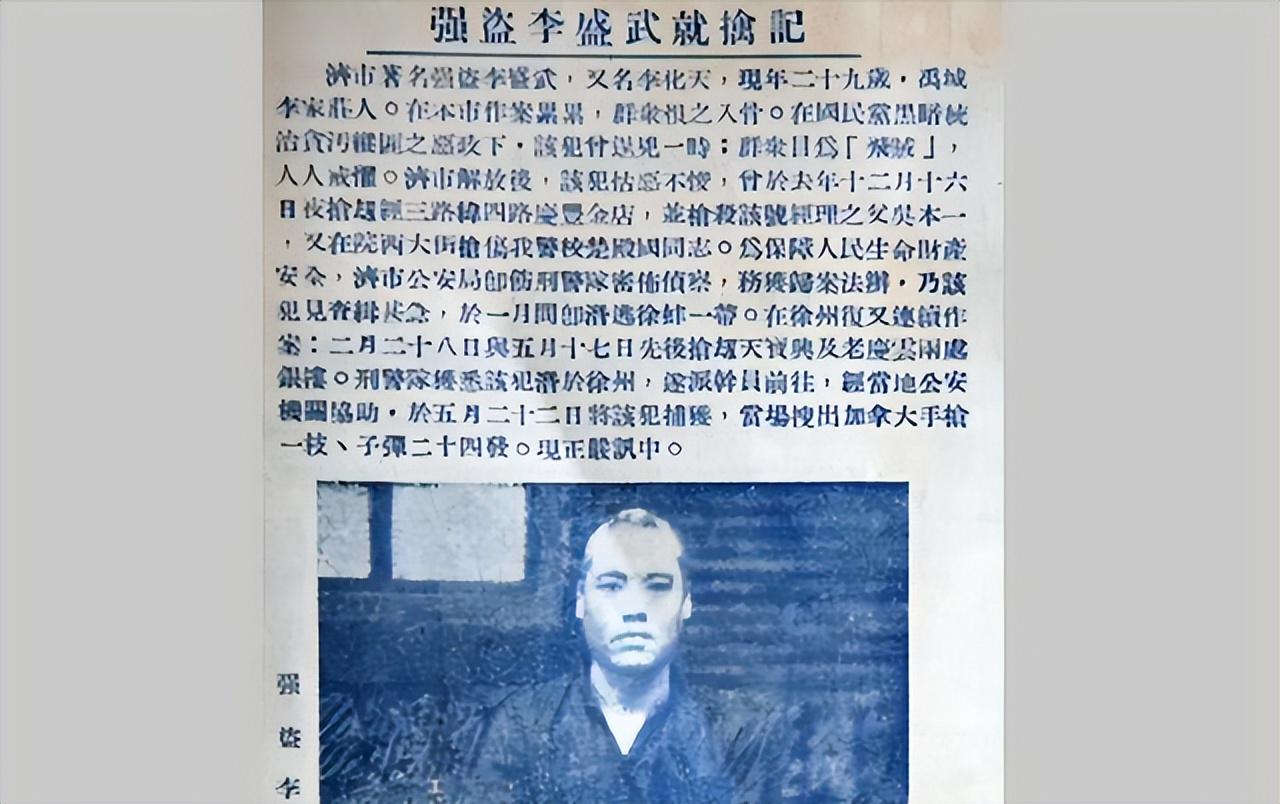 强盜李盛武就擒記
濟市著名强盜李盛武，又名李化天，現年二十九歲，禹城
李家莊人。在本市作案纍纍，群衆恨之入骨。在國民黨黑暗統
治貪污縱匪之惡政下，該犯曾逞兇一時；群衆目爲「飛賊」，
人人戒懼。濟市解放後，該犯怙惡不悛，曾於去年十二月十六
日夜搶刼經三路緯四路慶豐金店，並槍殺該號經理之父吳本一
，又在院西大街槍傷我警校楚殿國同志。爲保障人民生命財產
安全，濟市公安局即飭刑警隊密佈偵察，務獲歸案法辦，乃該
犯見查緝甚急，於一月間即潛逃徐蚌一帶。在徐州復又連續作
案：二月二十八日與五月十七日先後搶刼天寶興及老慶雲兩處
銀樓。刑警隊獲悉該犯潛於徐州，遂派幹員前往，經當地公安
機關協助，於五月二十二日將該犯捕獲，當場搜出加拿大手槍
一枝、子彈二十四發。現正嚴訊中。
强盜李